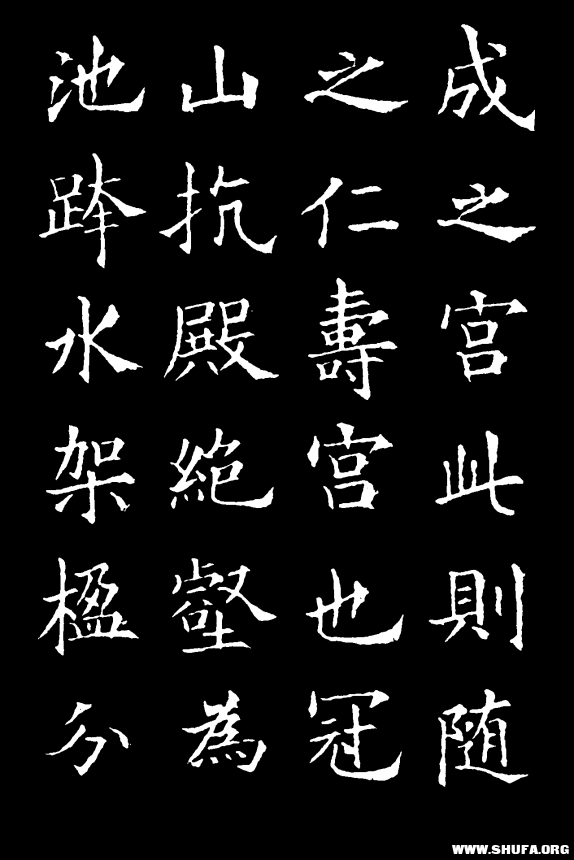 成之宫此則随
之仁壽宫也冠
山抗殿絶壑為
池跨水架楹分
WWW.SHUFA.ORG